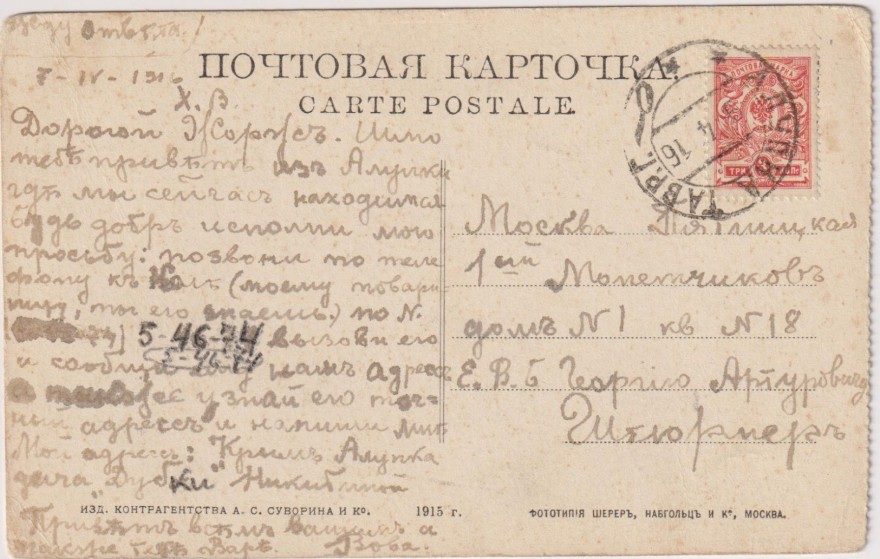 Отвѣтъ
7-IV-1916
ПОЧТОВАЯ КАРТОЧКА.
CARTE POSTALE.
Х. В.
Дорогой Жоржъ. Шлю
тебѣ привѣтъ изъ Алупки
гдѣ мы сейчасъ находимся
будь добръ исполни мою
просьбу: позвони по теле
фону къ Колѣ (моему товари
щу, ты его знаешь.) по N.
5-46-74 вызови его
5-46-74
и сообщи ему нашъ адресъ
а также узнай его точ-
ный адресъ и напиши мнѣ
Мой адресъ: Крымъ Алупка
дача "Дубки" Никитиной
Привѣтъ всѣмъ вашимъ а
также тетѣ Варѣ. Вова.
АЛУПКА ТАВР.Г.
4 16
ПОЧТОВАЯ МАРКА
ТРИ КОП.
Москва Пятницкая
1ый Монетчиковъ
домъ N 1 кв N 18
Е. В. Б Георгію Артуровичу
Штюрмеръ
ИЗД. КОНТРАГЕНТСТВА А. С. СУВОРИНА И Ко. 1915 г.
ФОТОТИПІЯ ШЕРЕРЪ, НАБГОЛЬЦЪ И Ко, МОСКВА.